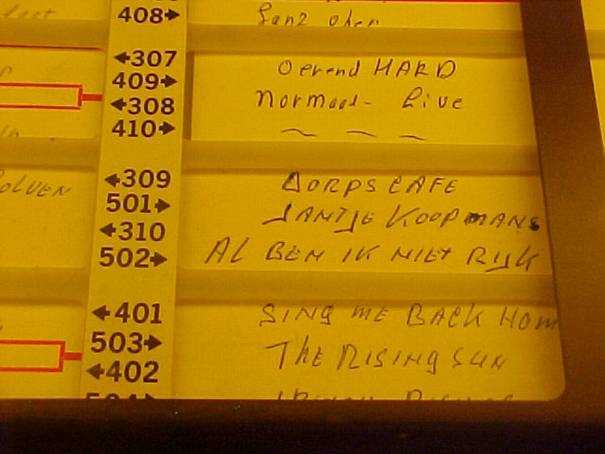 408→
←307
Oerend HARD
409→
←308
Normaal - Live
410→
←309
DORPS CAFE
501→
JANTJE KOOPMANS
←310
502→
AL BEN IK NIET RIJK
←401
SING ME BACK HOM
503→
THE RISING SUN
←402